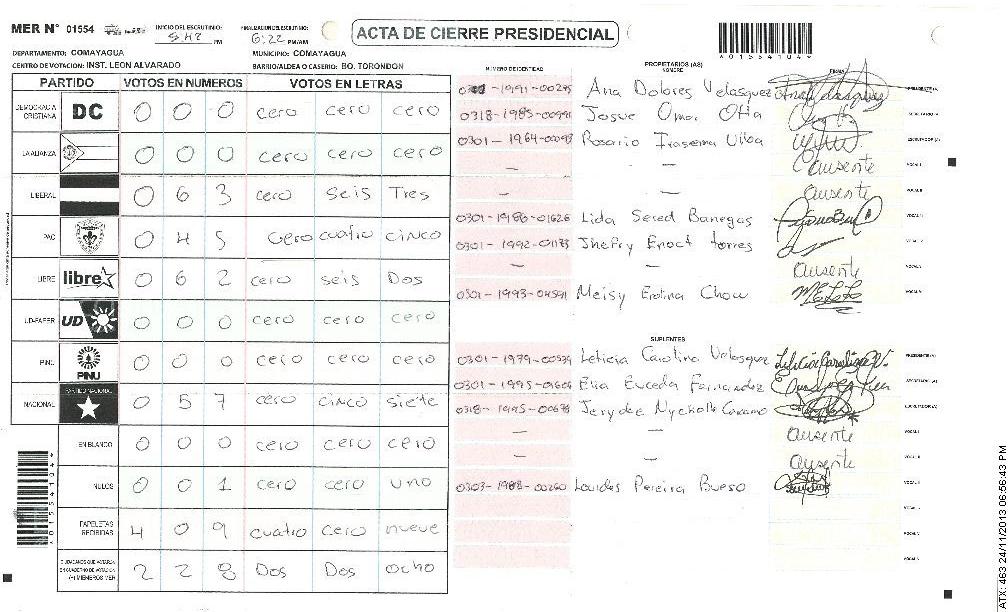 MER Nº 01554 INICIO DEL ESCRUTINIO: 5:42 PM FINALIZACION DEL ESCRUTINIO: 6:22 PM/AM ACTA DE CIERRE PRESIDENCIAL
DEPARTAMENTO: COMAYAGUA MUNICIPIO: COMAYAGUA
CENTRO DE VOTACION: INST. LEON ALVARADO BARRIO/ALDEA O CASERIO: BO. TORONDON
*01554104*
PARTIDO VOTOS EN NUMEROS VOTOS EN LETRAS
DEMOCRACIA CRISTIANA DC 0 0 0 cero cero cero
LA ALIANZA 0 0 0 cero cero cero
LIBERAL 0 6 3 cero seis Tres
PAC 0 4 5 Cero cuatro cinco
LIBRE libre 0 6 2 cero seis Dos
UD-FAPER UD 0 0 0 cero cero cero
PINU PINU 0 0 0 cero cero cero
NACIONAL PARTIDO NACIONAL 0 5 7 cero cinco siete
EN BLANCO 0 0 0 cero cero cero
NULOS 0 0 1 cero cero uno
PAPELETAS RECIBIDAS 4 0 9 cuatro cero nueve
CIUDADANOS QUE VOTARON EN CUADERNO DE VOTACION (+) MIEMBROS MER 2 2 8 Dos Dos ocho
NUMERO DE IDENTIDAD PROPIETARIOS (AS) NOMBRE FIRMA
-1991- Ana Dolores Velasquez PRESIDENTE (A)
0318-1985-00991 Josue Omar SECRETARIO (A)
0301-1964- Rosario ESCRUTADOR (A)
— — Ausente VOCAL I
— Ausente VOCAL II
0301-1986-01626 Lida Sered Banegas
0301-1992- Jhefry Enoct torres
— — Ausente
0301-1993-04591 Meisy Erolina Chow
SUPLENTES
0301-1979-00539 Leticia Carolina Velasquez PRESIDENTE (A)
0301-1995-01604 Elia Euceda Fernandez SECRETARIO (A)
0318-1995- Jerydee ESCRUTADOR (A)
— — Ausente VOCAL I
— — Ausente VOCAL II
0303-1988-00260 Lourdes Pereira Bueso
*01554104*
ATX: 463 24/11/2013 06:56:43 PM